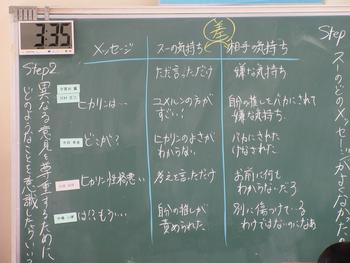 3:35
差
メッセージ
スーの気持ち
相手の気持ち
ただ言っただけ
嫌な気持ち
ヒカリンは…
コメルンの方が
すごい!
自分の推しをバカにされて
嫌な気持ち
どこが?
ヒカリンのよさが
わからない
バカにされた
けなされた
ヒカリン性格悪い
考えを言っただけ
お前に何も
わからないだろ
は!?もういい
自分の推しが
責められた
別に傷つけてる
わけではないのになあ
Step2
異なる意見を尊重するために、
どのようなことを意識したらいい
Step
スーのどのメッ